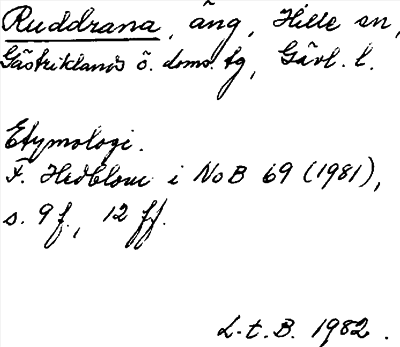 Ruddrana, äng, Hille sn,
Gästriklands ö. doms. tg, Gävl. l.
Etymologi.
F. Hedblom i NoB 69 (1981),
s. 9 f., 12 ff.
L.t.B. 1982.